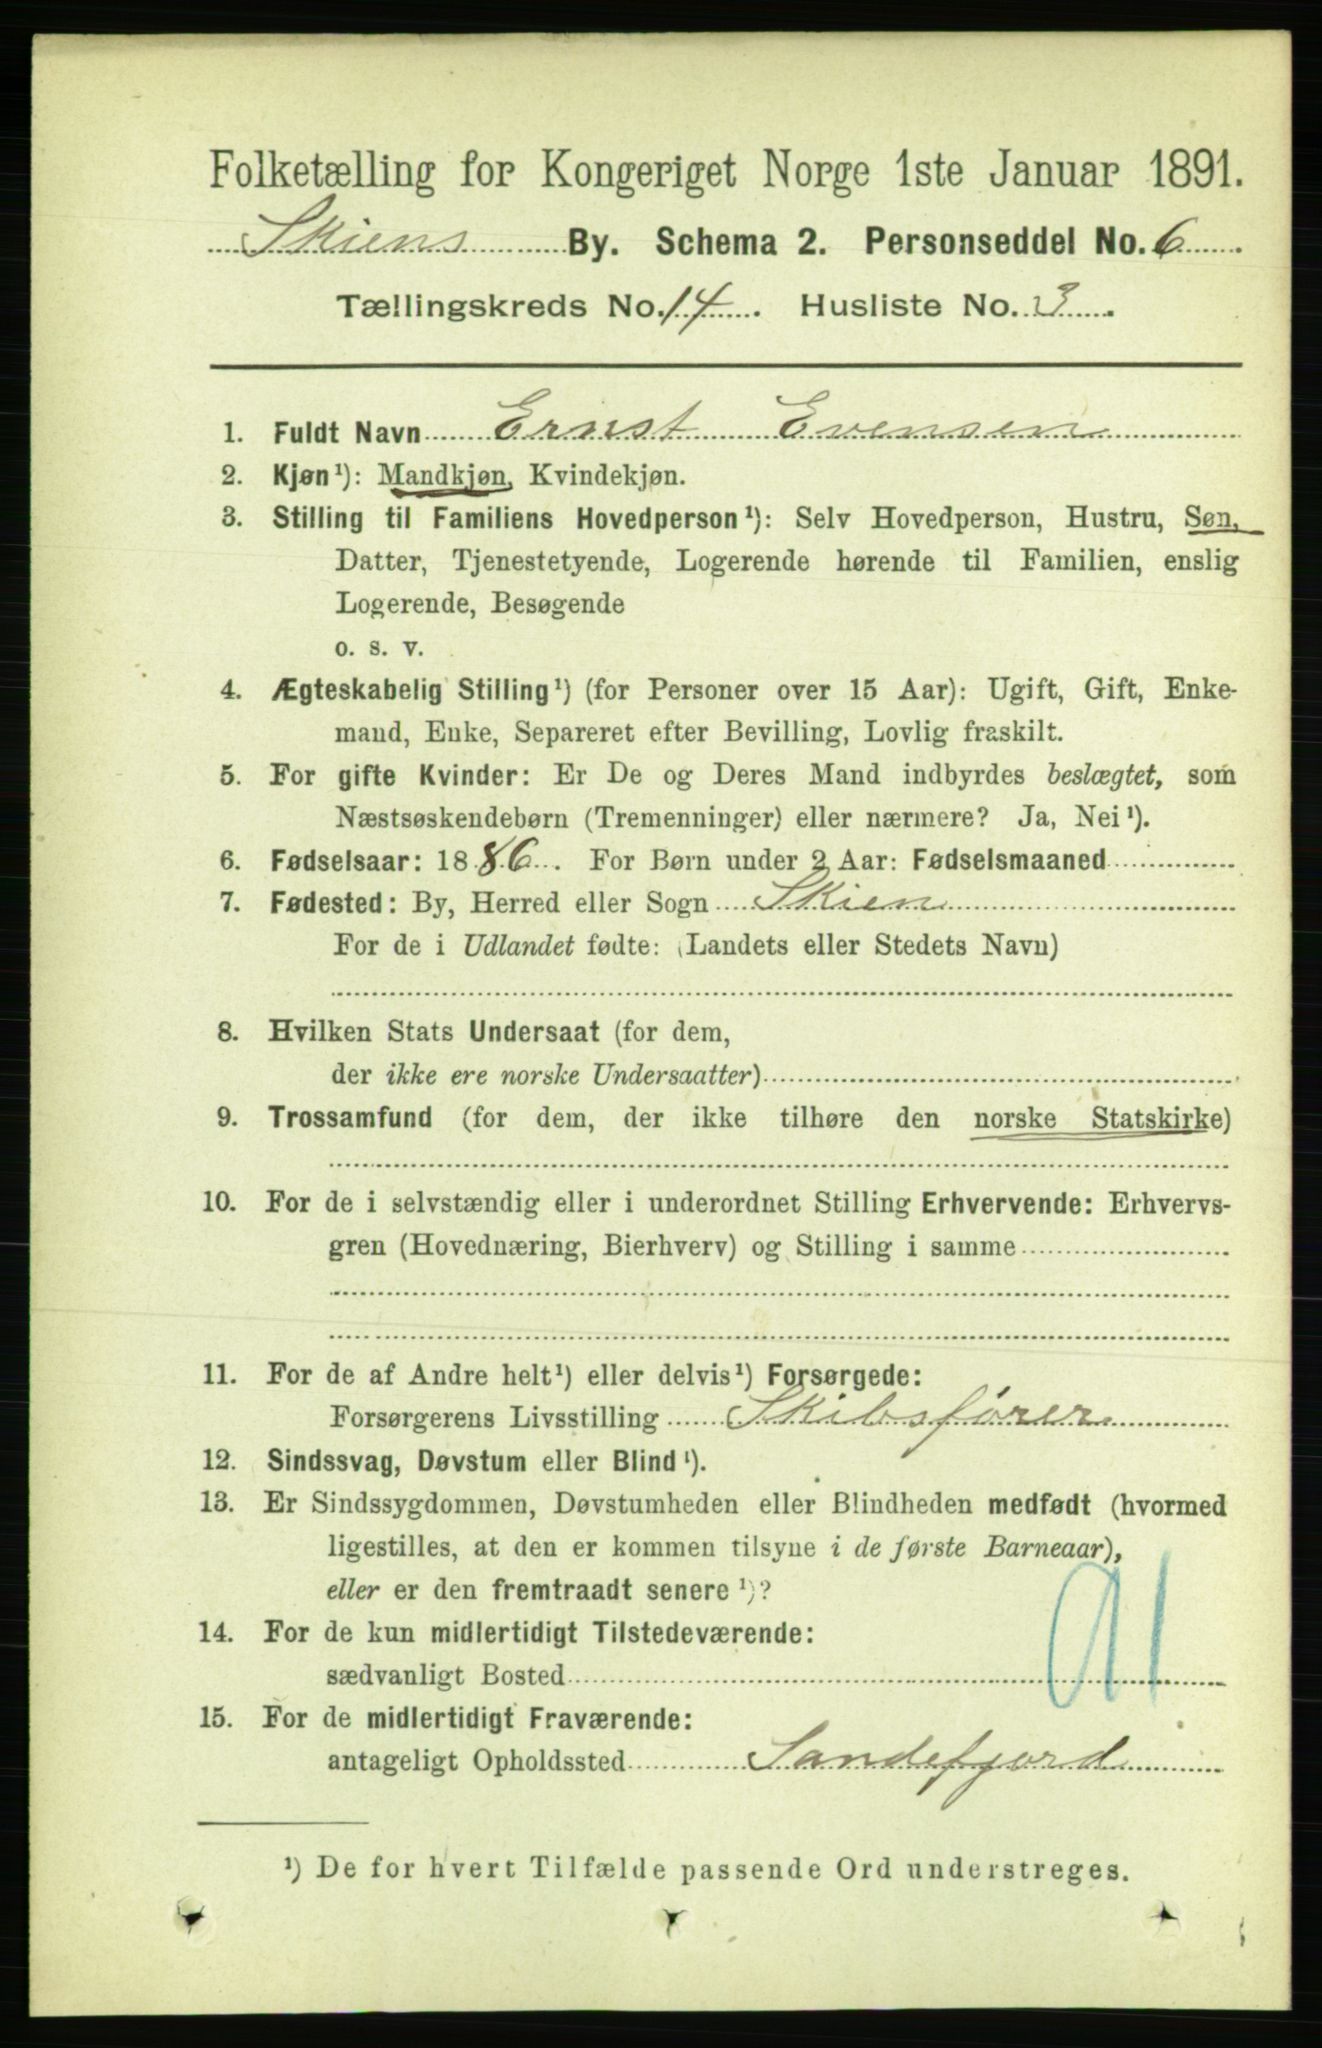 Folketælling for Kongeriget Norge 1ste Januar 1891.
Skiens By. Schema 2. Personseddel No. 6
Tællingskreds No. 14. Husliste No. 3.
1. Fuldt Navn Ernst Evensen
2. Kjøn¹): Mandkjøn, Kvindekjøn.
3. Stilling til Familiens Hovedperson¹): Selv Hovedperson, Hustru, Søn,
Datter, Tjenestetyende, Logerende hørende til Familien, enslig
Logerende, Besøgende
o. s. v.
4. Ægteskabelig Stilling¹) (for Personer over 15 Aar): Ugift, Gift, Enke-
mand, Enke, Separeret efter Bevilling, Lovlig fraskilt.
5. For gifte Kvinder: Er De og Deres Mand indbyrdes beslægtet, som
Næstsøskendebørn (Tremenninger) eller nærmere? Ja, Nei¹).
6. Fødselsaar: 1886. For Børn under 2 Aar: Fødselsmaaned
7. Fødested: By, Herred eller Sogn Skien
For de i Udlandet fødte: (Landets eller Stedets Navn)
8. Hvilken Stats Undersaat (for dem,
der ikke ere norske Undersaatter)
9. Trossamfund (for dem, der ikke tilhøre den norske Statskirke)
10. For de i selvstændig eller i underordnet Stilling Erhvervende: Erhvervs-
gren (Hovednæring, Bierhverv) og Stilling i samme
11. For de af Andre helt¹) eller delvis¹) Forsørgede:
Forsørgerens Livsstilling Skibsfører
12. Sindssvag, Døvstum eller Blind¹).
13. Er Sindssygdommen, Døvstumheden eller Blindheden medfødt (hvormed
ligestilles, at den er kommen tilsyne i de første Barneaar),
eller er den fremtraadt senere¹)?
14. For de kun midlertidigt Tilstedeværende:
sædvanligt Bosted
91
15. For de midlertidigt Fraværende:
antageligt Opholdssted Sandefjord
¹) De for hvert Tilfælde passende Ord understreges.